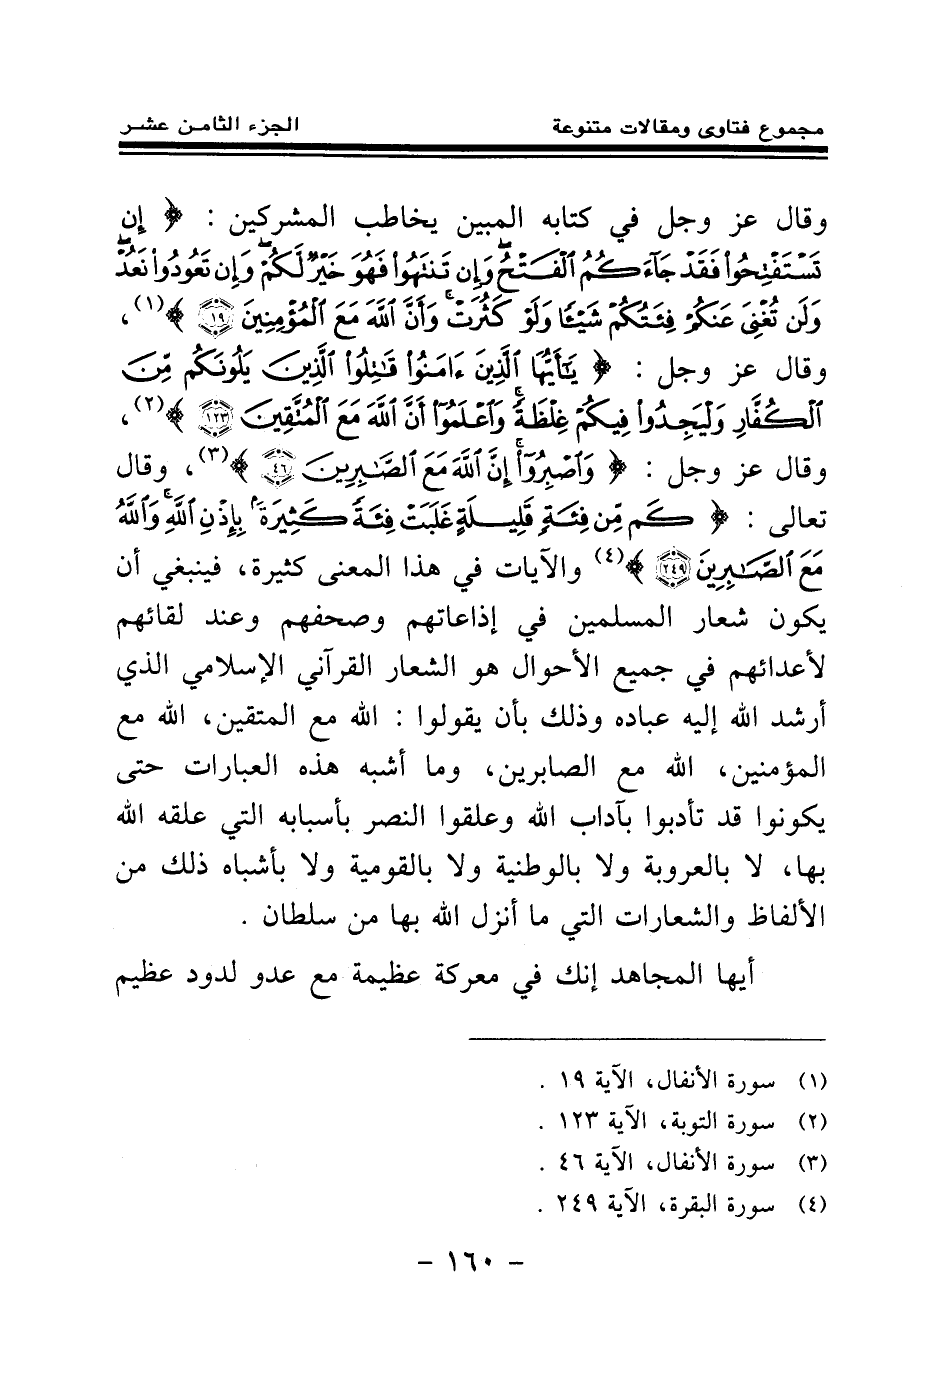 مجموع فتاوى ومقالات متنوعة الجزء الثامن عشر
وقال عز وجل في كتابه المبين يخاطب المشركين : ﴿ إِن
تَسْتَفْتِحُوا۟ فَقَدْ جَآءَكُمُ ٱلْفَتْحُ ۖ وَإِن تَنتَهُوا۟ فَهُوَ خَيْرٌ لَّكُمْ ۖ وَإِن تَعُودُوا۟ نَعُدْ
وَلَن تُغْنِىَ عَنكُمْ فِئَتُكُمْ شَيْـًٔا وَلَوْ كَثُرَتْ ۚ وَأَنَّ ٱللَّهَ مَعَ ٱلْمُؤْمِنِينَ ١٩ ﴾(١)،
وقال عز وجل : ﴿ يَـٰٓأَيُّهَا ٱلَّذِينَ ءَامَنُوا۟ قَـٰتِلُوا۟ ٱلَّذِينَ يَلُونَكُم مِّنَ
ٱلْكُفَّارِ وَلْيَجِدُوا۟ فِيكُمْ غِلْظَةً ۚ وَٱعْلَمُوٓا۟ أَنَّ ٱللَّهَ مَعَ ٱلْمُتَّقِينَ ١٢٣ ﴾(٢)،
وقال عز وجل : ﴿ وَٱصْبِرُوٓا۟ ۚ إِنَّ ٱللَّهَ مَعَ ٱلصَّـٰبِرِينَ ٤٦ ﴾(٣)، وقال
تعالى : ﴿ كَم مِّن فِئَةٍ قَلِيلَةٍ غَلَبَتْ فِئَةً كَثِيرَةًۢ بِإِذْنِ ٱللَّهِ ۗ وَٱللَّهُ
مَعَ ٱلصَّـٰبِرِينَ ٢٤٩ ﴾(٤) والآيات في هذا المعنى كثيرة، فينبغي أن
يكون شعار المسلمين في إذاعاتهم وصحفهم وعند لقائهم
لأعدائهم في جميع الأحوال هو الشعار القرآني الإسلامي الذي
أرشد الله إليه عباده وذلك بأن يقولوا : الله مع المتقين، الله مع
المؤمنين، الله مع الصابرين، وما أشبه هذه العبارات حتى
يكونوا قد تأدبوا بآداب الله وعلقوا النصر بأسبابه التي علقه الله
بها، لا بالعروبة ولا بالوطنية ولا بالقومية ولا بأشباه ذلك من
الألفاظ والشعارات التي ما أنزل الله بها من سلطان .
أيها المجاهد إنك في معركة عظيمة مع عدو لدود عظيم
(١) سورة الأنفال، الآية ١٩ .
(٢) سورة التوبة، الآية ١٢٣ .
(٣) سورة الأنفال، الآية ٤٦ .
(٤) سورة البقرة، الآية ٢٤٩ .
- ١٦٠ -